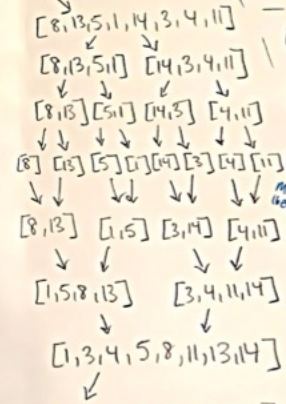 [8,13,5,1,14,3,4,11]
[8,13,5,1] [14,3,4,11]
[8,13] [5,1] [14,3] [4,11]
[8] [13] [5] [1] [14] [3] [4] [11]
[8,13] [1,5] [3,14] [4,11]
[1,5,8,13] [3,4,11,14]
[1,3,4,5,8,11,13,14]